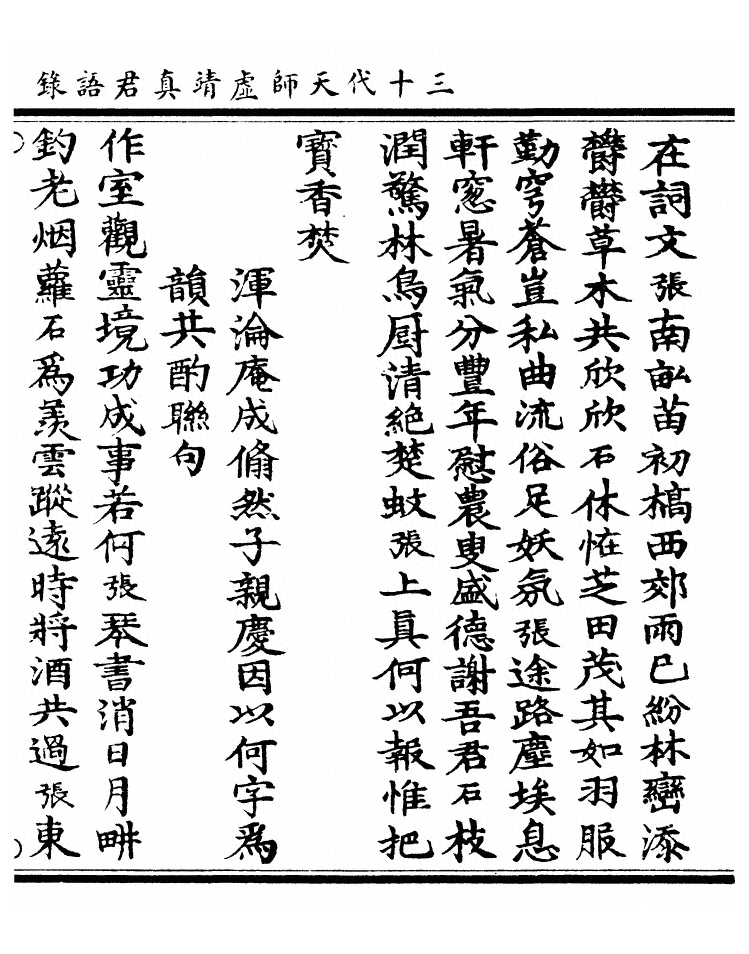 三十代天師虛靖真君語錄
在詞文張南畝苗初槁西郊雨已紛林巒添
欝欝草木共欣欣石休恠芝田茂其如羽服
勤穹蒼豈私曲流俗足妖氛張途路塵埃息
軒窓暑氣分豐年慰農叟盛德謝吾君石枝
潤驚林鳥厨清絕楚蚊張上真何以報惟把
寳香焚
渾淪庵成翛然子親慶因以何字為
韻共酌聯句
作室觀靈境功成事若何張琴書消日月畊
釣老烟蘿石為羨雲蹤遠時將酒共過張東